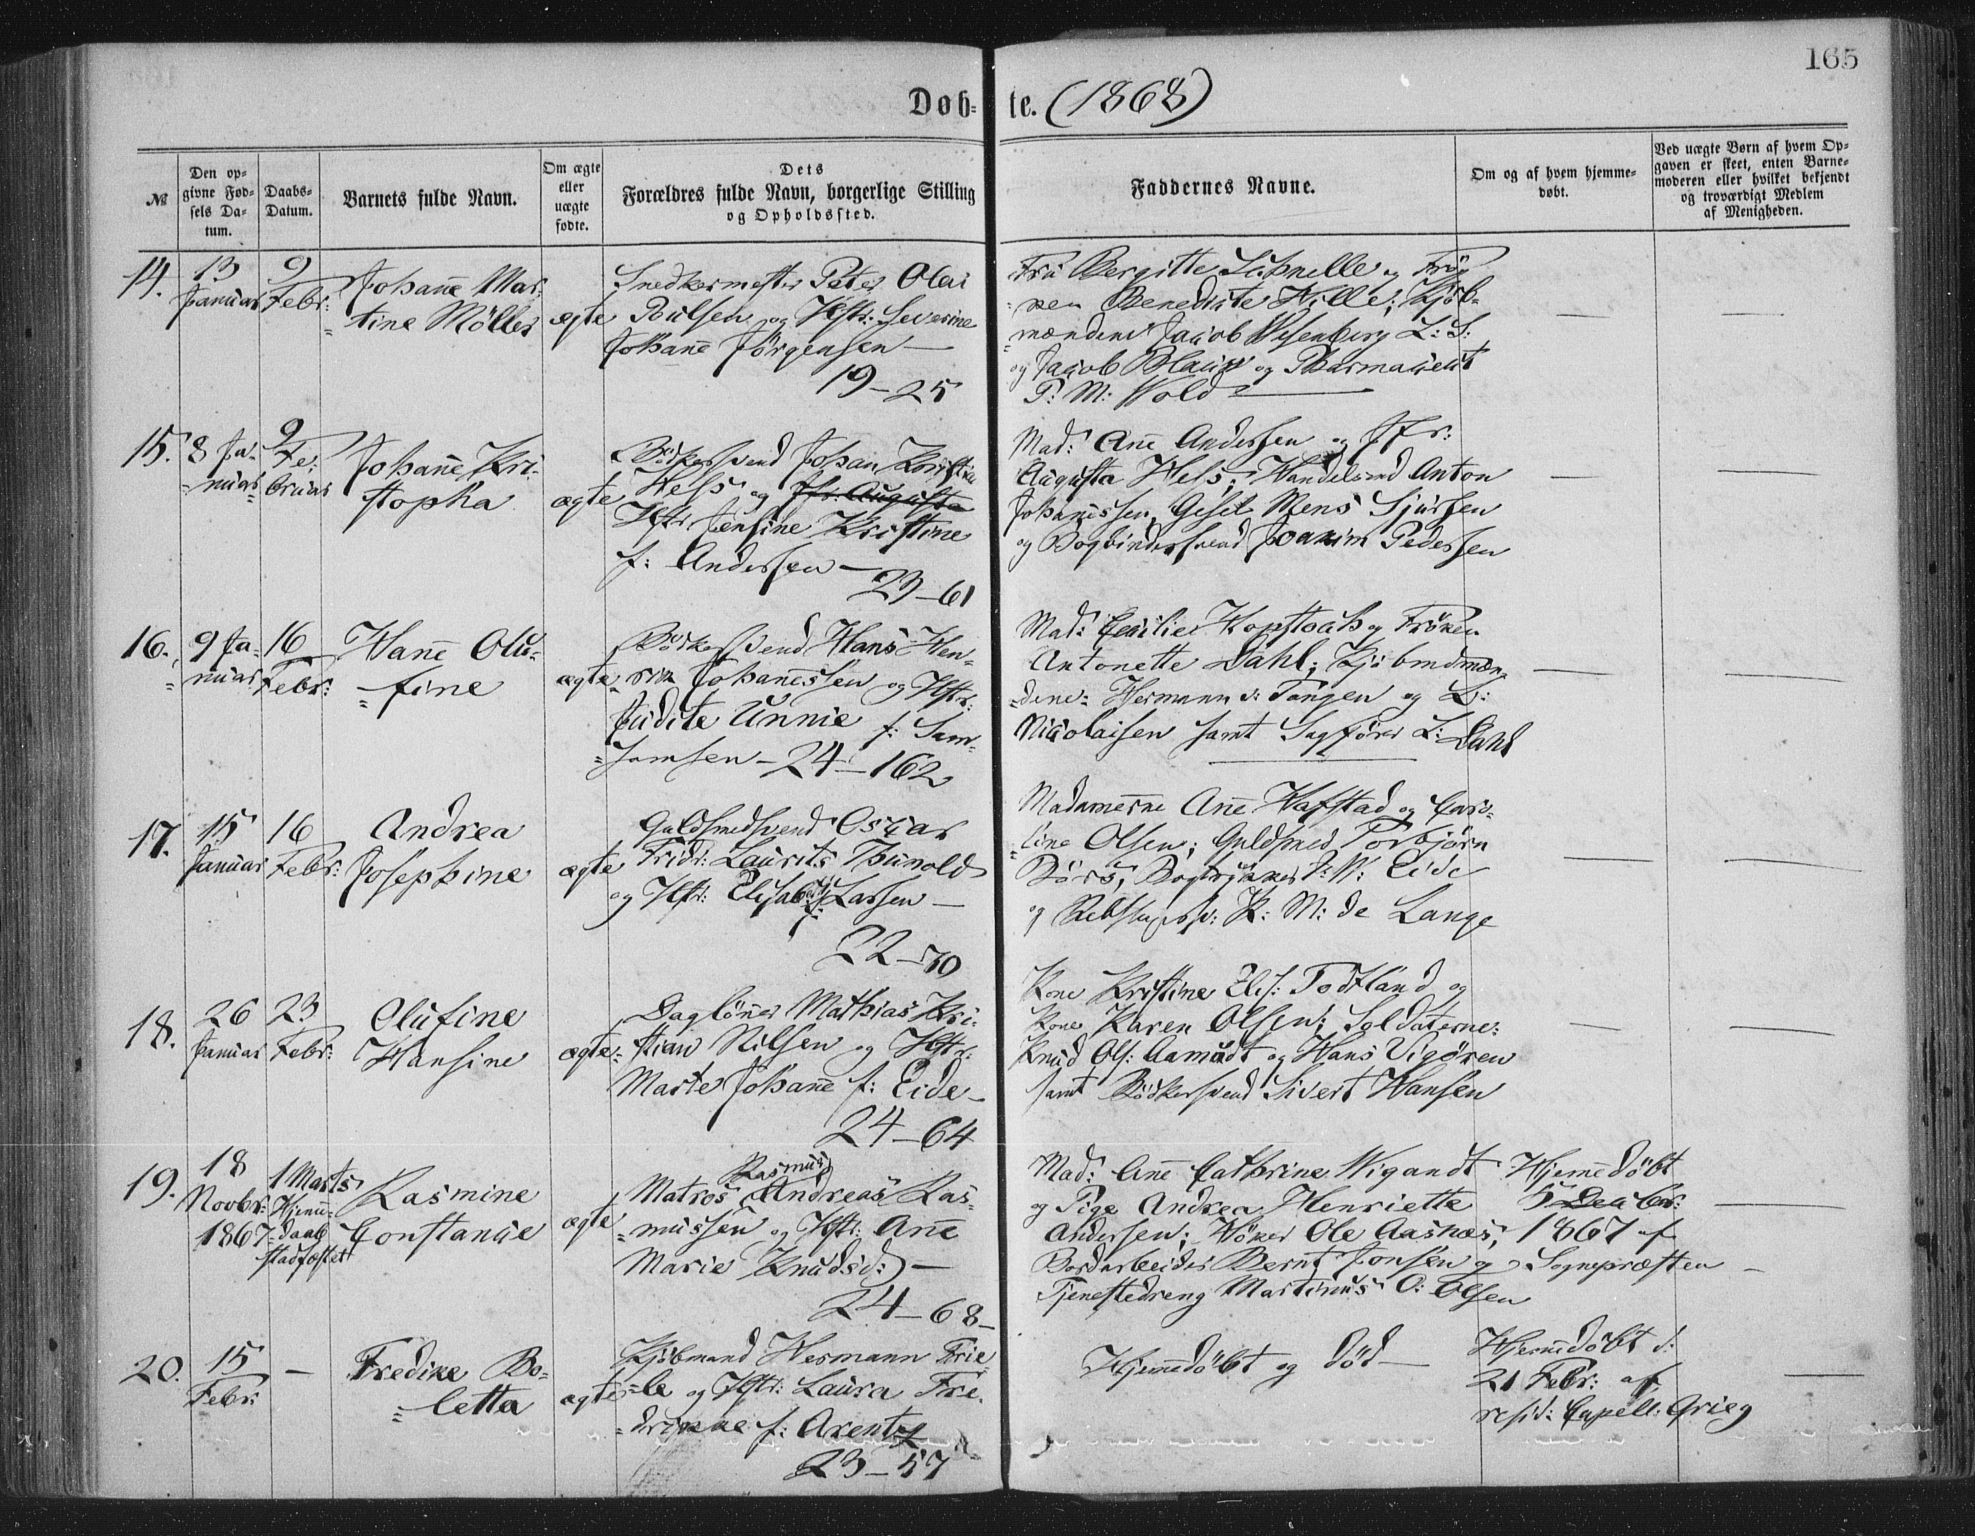 165
Døb- te. (1868)
№
Den op-
givne Fød-
sels Da-
tum.
Daabs-
Datum.
Barnets fulde Navn.
Om ægte
eller
uægte
fødte.
Dets
Forældres fulde Navn, borgerlige Stilling
og Opholdssted.
Faddernes Navne.
Om og af hvem hjemme-
døbt.
Ved uægte Børn af hvem Op-
gaven er skeet, enten Barne-
moderen eller hvilket bekjendt
og troværdigt Medlem
af Menigheden.
14.
13
Januar
9
Febr:
Johanne Mar-
tine Møller
ægte
Snedkermester Peter Olai
Poulsen og Hstr: Severine
Johanne Jörgensen —
19 — 25
Fru Bergitte Schnelle og Frö-
ken Benedicte Hille; Kjöb-
mændene Jacob Wesenberg L: S:
og Jacob Blauw og Pharmaceut
P: M: Wold
—
—
15.
8 Ja-
nuar
9
Fe-
bruar
Johanne Kri-
stopha
ægte
Bödkersvend Johan Kristian
Hess og Jfr: Augusta
Hstr Jensine Kristine
f: Andersen —
23 — 61
Mad: Ane Andersen og Jfr:
Augusta Hess; Handelsmd Anton
Johannessen, Gesel Mens Sjursen
og Bogbindersvend Joakim Pedersen
—
—
16.
9 Ja-
nuar
16
Febr:
Hanne Olu-
fine
ægte
Bödkersvend Hans Hen-
rik Johannessen og Hstr:
Judite Unnie f: Sam-
samsen — 24 — 162
Mad: Cecilie Kopstoah og Fröken
Antonette Dahl; Kjöbmdmæn-
dene: Hermann v: Tangen og L:
Nicolaisen samt Sagförer L: Dahl
—
—
17.
15
Januar
16
Febr:
Andrea
Josephine
ægte
Guldsmedsvend Oscar
Fridr: Laurits Thunold
og Hstr: Elisabeth f: Larsen —
22 — 70
Madamerne Ane Hafstad og Caro-
line Olsen; Guldsmed Torbjörn
Börs, Bogtrykker J: W: Eide
og K: M: de Lange
—
—
18.
26
Januar
23
Febr:
Olufine
Hansine
ægte
Daglönner Mathias Kri-
stian Nilsen og Hstr:
Marte Johanne f: Eide —
24 — 64
Kone Kristine Elis: Todtland og
Kone Karen Olsen; Soldaterne:
Knud Ols: Aamodt og Hans Vigören
samt Bödkersvend Sivert Hansen
—
—
19.
18
Novbr:
1867
1 Marts
Hjemme-
daab
stadfæstet
Rasmine
Constance
ægte
Rasmus
Matros Andreas Ras-
mussen og Hstr: Ane
Marie Knudsd: —
24 — 68 —
Mad: Ane Cathrine Wigandt
og Pige Andrea Henriette
Andersen; Höker Ole Aasnæs;
Bordarbeider Bernt Jonsen og
Tjenestedreng Martinus O: Olsen
Hjemmedöbt
5 Decbr:
1867 af
Sognepræsten
—
20.
15
Febr:
—
Fredike Bo-
letta
ægte
Kjöbmand Hermann Frie-
le og Hstr: Laura Fre-
drikke f: Arentz
23 — 57
Hjemmedöbt og död —
Hjemmedöbt d:
21 Febr: af
resid: Capell: Grieg
—